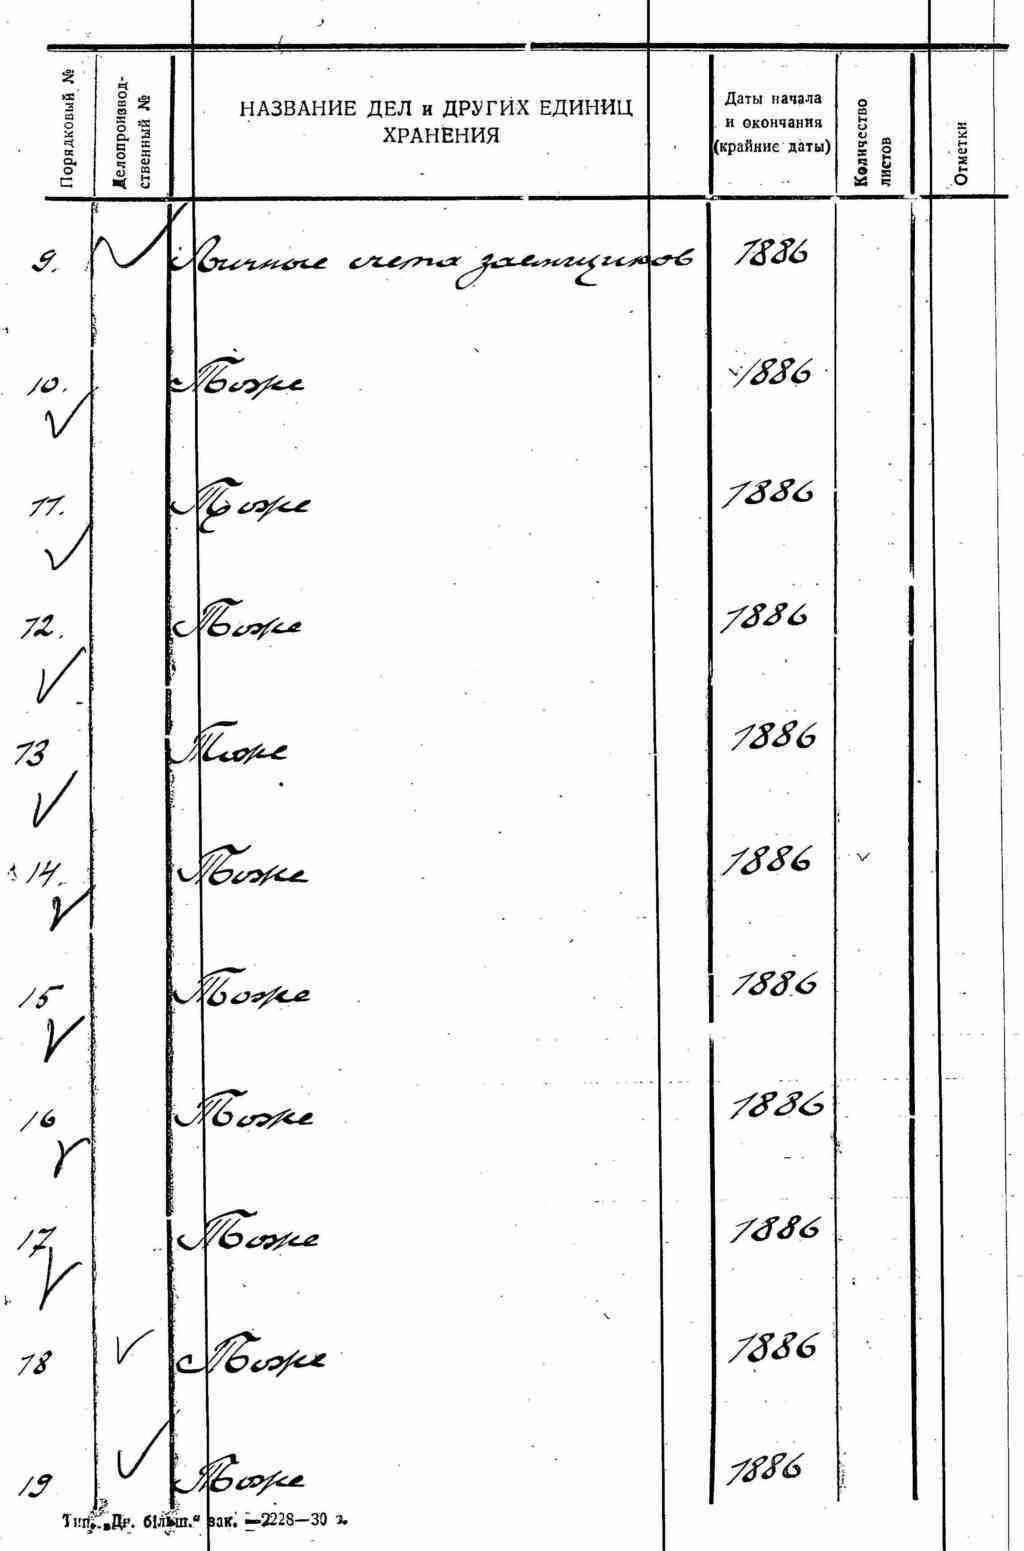 Порядковый №
Делопроизвод-
ственный №
НАЗВАНИЕ ДЕЛ и ДРУГИХ ЕДИНИЦ
ХРАНЕНИЯ
Даты начала
и окончания
(крайние даты)
Количество
листов
Отметки
9. Личные счета заемщиков 1886
10. Тоже 1886
11. Тоже 1886
12. Тоже 1886
13 Тоже 1886
14. Тоже 1886
15 Тоже 1886
16 Тоже 1886
17 Тоже 1886
18 Тоже 1886
19 Тоже 1886
Тип. „Др. більш.“ зак. —2228—30 з.